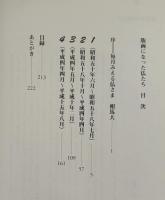 版画になった仏たち 目次
序―毎月みえる仏さま 相馬大 1
1 (昭和五十年六月〜昭和五十八年七月) 5
2 (昭和五十八年十月〜平成四年四月) 57
3 (平成四年五月〜平成十年二月) 109
4 (平成四年四月〜平成十五年八月) 161
目録 213
あとがき 222